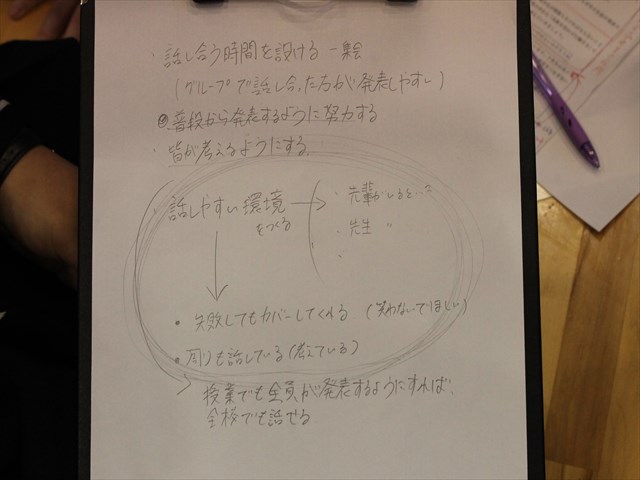 ・話し合う時間を設ける 一集会
(グループで話し合った方が発表しやすい)
②普段から発表するように努力する
・皆が考えるようにする
話しやすい環境をつくる → ・先輩がいると…?
・先生 〃
・
・失敗してもカバーしてくれる (笑わないでほしい)
・周りも話している(考えている)
授業でも全員が発表するようにすれば、
全校でも話せる